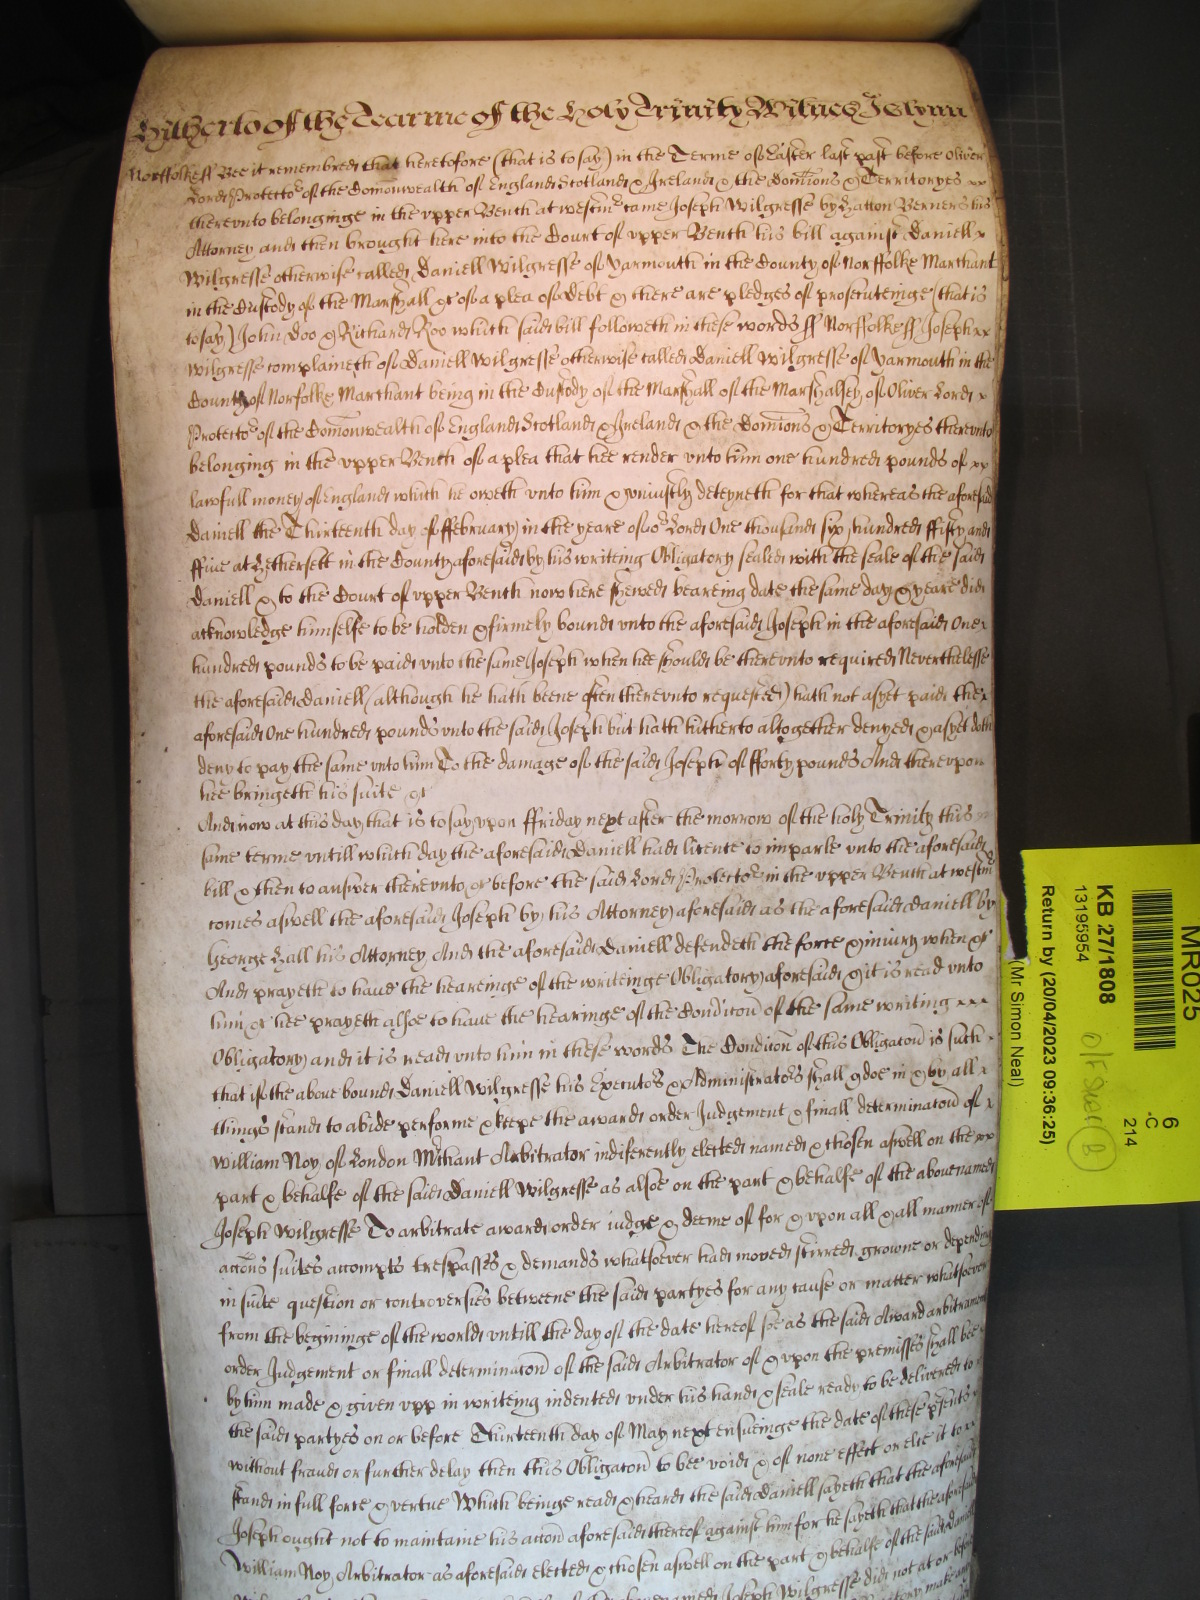 Hitherto of the Tearme of the Holy Trinity Witnes J Glynn
Norffolke ss Bee it remembred that heretofore (that is to say) in the Terme of Easter last past before Oliver
Lord Protector of the Comonwealth of England Scotland & Ireland & the Domions & Territoryes xx
therevnto belonginge in the vpper Bench at westmr came Joseph Wilgresse by Hatton Berners his
Attorney and then brought here into the Court of vpper Bench his bill against Daniell x
Wilgresse otherwise called Daniell Wilgresse of Yarmouth in the County of Norffolke Marchant
in the Custody of the Marshall &c of a plea of Debt & there are pledges of prosecuteinge (that is
to say) John Doo & Richard Roo which said bill followeth in these words ss Norffolke ss Joseph xx
Wilgresse complaineth of Daniell Wilgresse otherwise called Daniell Wilgresse of Yarmouth in the
County of Norfolke Marchant being in the Custody of the Marshall of the Marshalsey of Oliver Lord x
Protector of the Comonwealth of England Scotland & Ireland & the Domions & Territoryes therevnto
belonging in the vpper Bench of a plea that hee render vnto him one hundred pounds of xx
lawfull money of England which he oweth vnto him & vniustly deteyneth for that whereas the aforesaid
Daniell the Thirteenth day of ffebruary in the yeare of or Lord One thousand six hundred ffifty and
ffiue at Hethersett in the County aforesaid by his writeing Obligatory sealed with the seale of the said
Daniell & to the Court of vpper Bench now here shewed beareing date the same day & yeare did
acknowledge himselfe to be holden & firmely bound vnto the aforesaid Joseph in the aforesaid One
hundred pounds to be paid vnto the same Joseph when hee should be therevnto required Neverthelesse
the aforesaid Daniell (although he hath beene often therevnto requested) hath not as yet paid the x
aforesaid One hundred pounds vnto the said Joseph but hath hitherto altogether denyed & as yet doth
deny to pay the same vnto him To the damage of the said Joseph of fforty pounds And therevpon
hee bringeth his suite &c
And now at this day that is to say vpon ffriday next after the morrow of the holy Trinity this
same terme vntill which day the aforesaid Daniell had licence to imparle vnto the aforesaid
bill & then to answer therevnto &c before the said Lord Protector in the vpper Bench at westmr
comes aswell the aforesaid Joseph by his Attorney aforesaid as the aforesaid Daniell by
George Hall his Attorney And the aforesaid Daniell defendeth the force & iniury when &c
And prayeth to haue the heareinge of the writeinge Obligatory aforesaid & it is read vnto
him &c hee prayeth alsoe to haue the hearinge of the Condicon of the same writing xxx
Obligatory and it is read vnto him in these words The Condicon of this Obligacon is such
that if the above bound Daniell Wilgresse his Executors & Administrators shall & doe in & by all x
things stand to abide performe & keepe the award order Judgement & finall determinacon of x
William Noy of London Mchant Arbitrator indiferently elected named & chosen aswell on the xx
part & behalfe of the said Daniell Wilgresse as alsoe on the part & behalfe of the abouenamed
Joseph Wilgresse To arbitrate award order iudge & deeme of for & vpon all & all manner of
accons suites accompts trespasses & demands whatsoever had moved stirred growne or depending
in suite question or controversies betweene the said partyes for any cause or matter whatsoever
from the begininge of the world vntill the day of the date hereof soe as the said Award arbitrament
order Judgement or finall determinacon of the said Arbitrator of & vpon the premisses shall bee
by him made & given vpp in writeing indented vnder his hand & seale ready to be delivered to
the said partyes on or before Thirteenth day of May next ensueinge the date of these psents
without fraud or further delay then this Obligacon to bee void & of none effect or else it to xx
stand in full force & vertue Which beinge read & heard the said Daniell sayeth that the aforesaid
Joseph ought not to maintaine his accon aforesaid thereof against him for he sayeth that the aforesaid
William Noy Arbitrator as aforesaid elected & chosen aswell on the part & behalfe of the said Daniell
Joseph Wilgresse did not at or before
MR025
6
-C
214
KB 27/1808
13195954
Return by (20/04/2023 09:36:25)
(Mr Simon Neal)
B